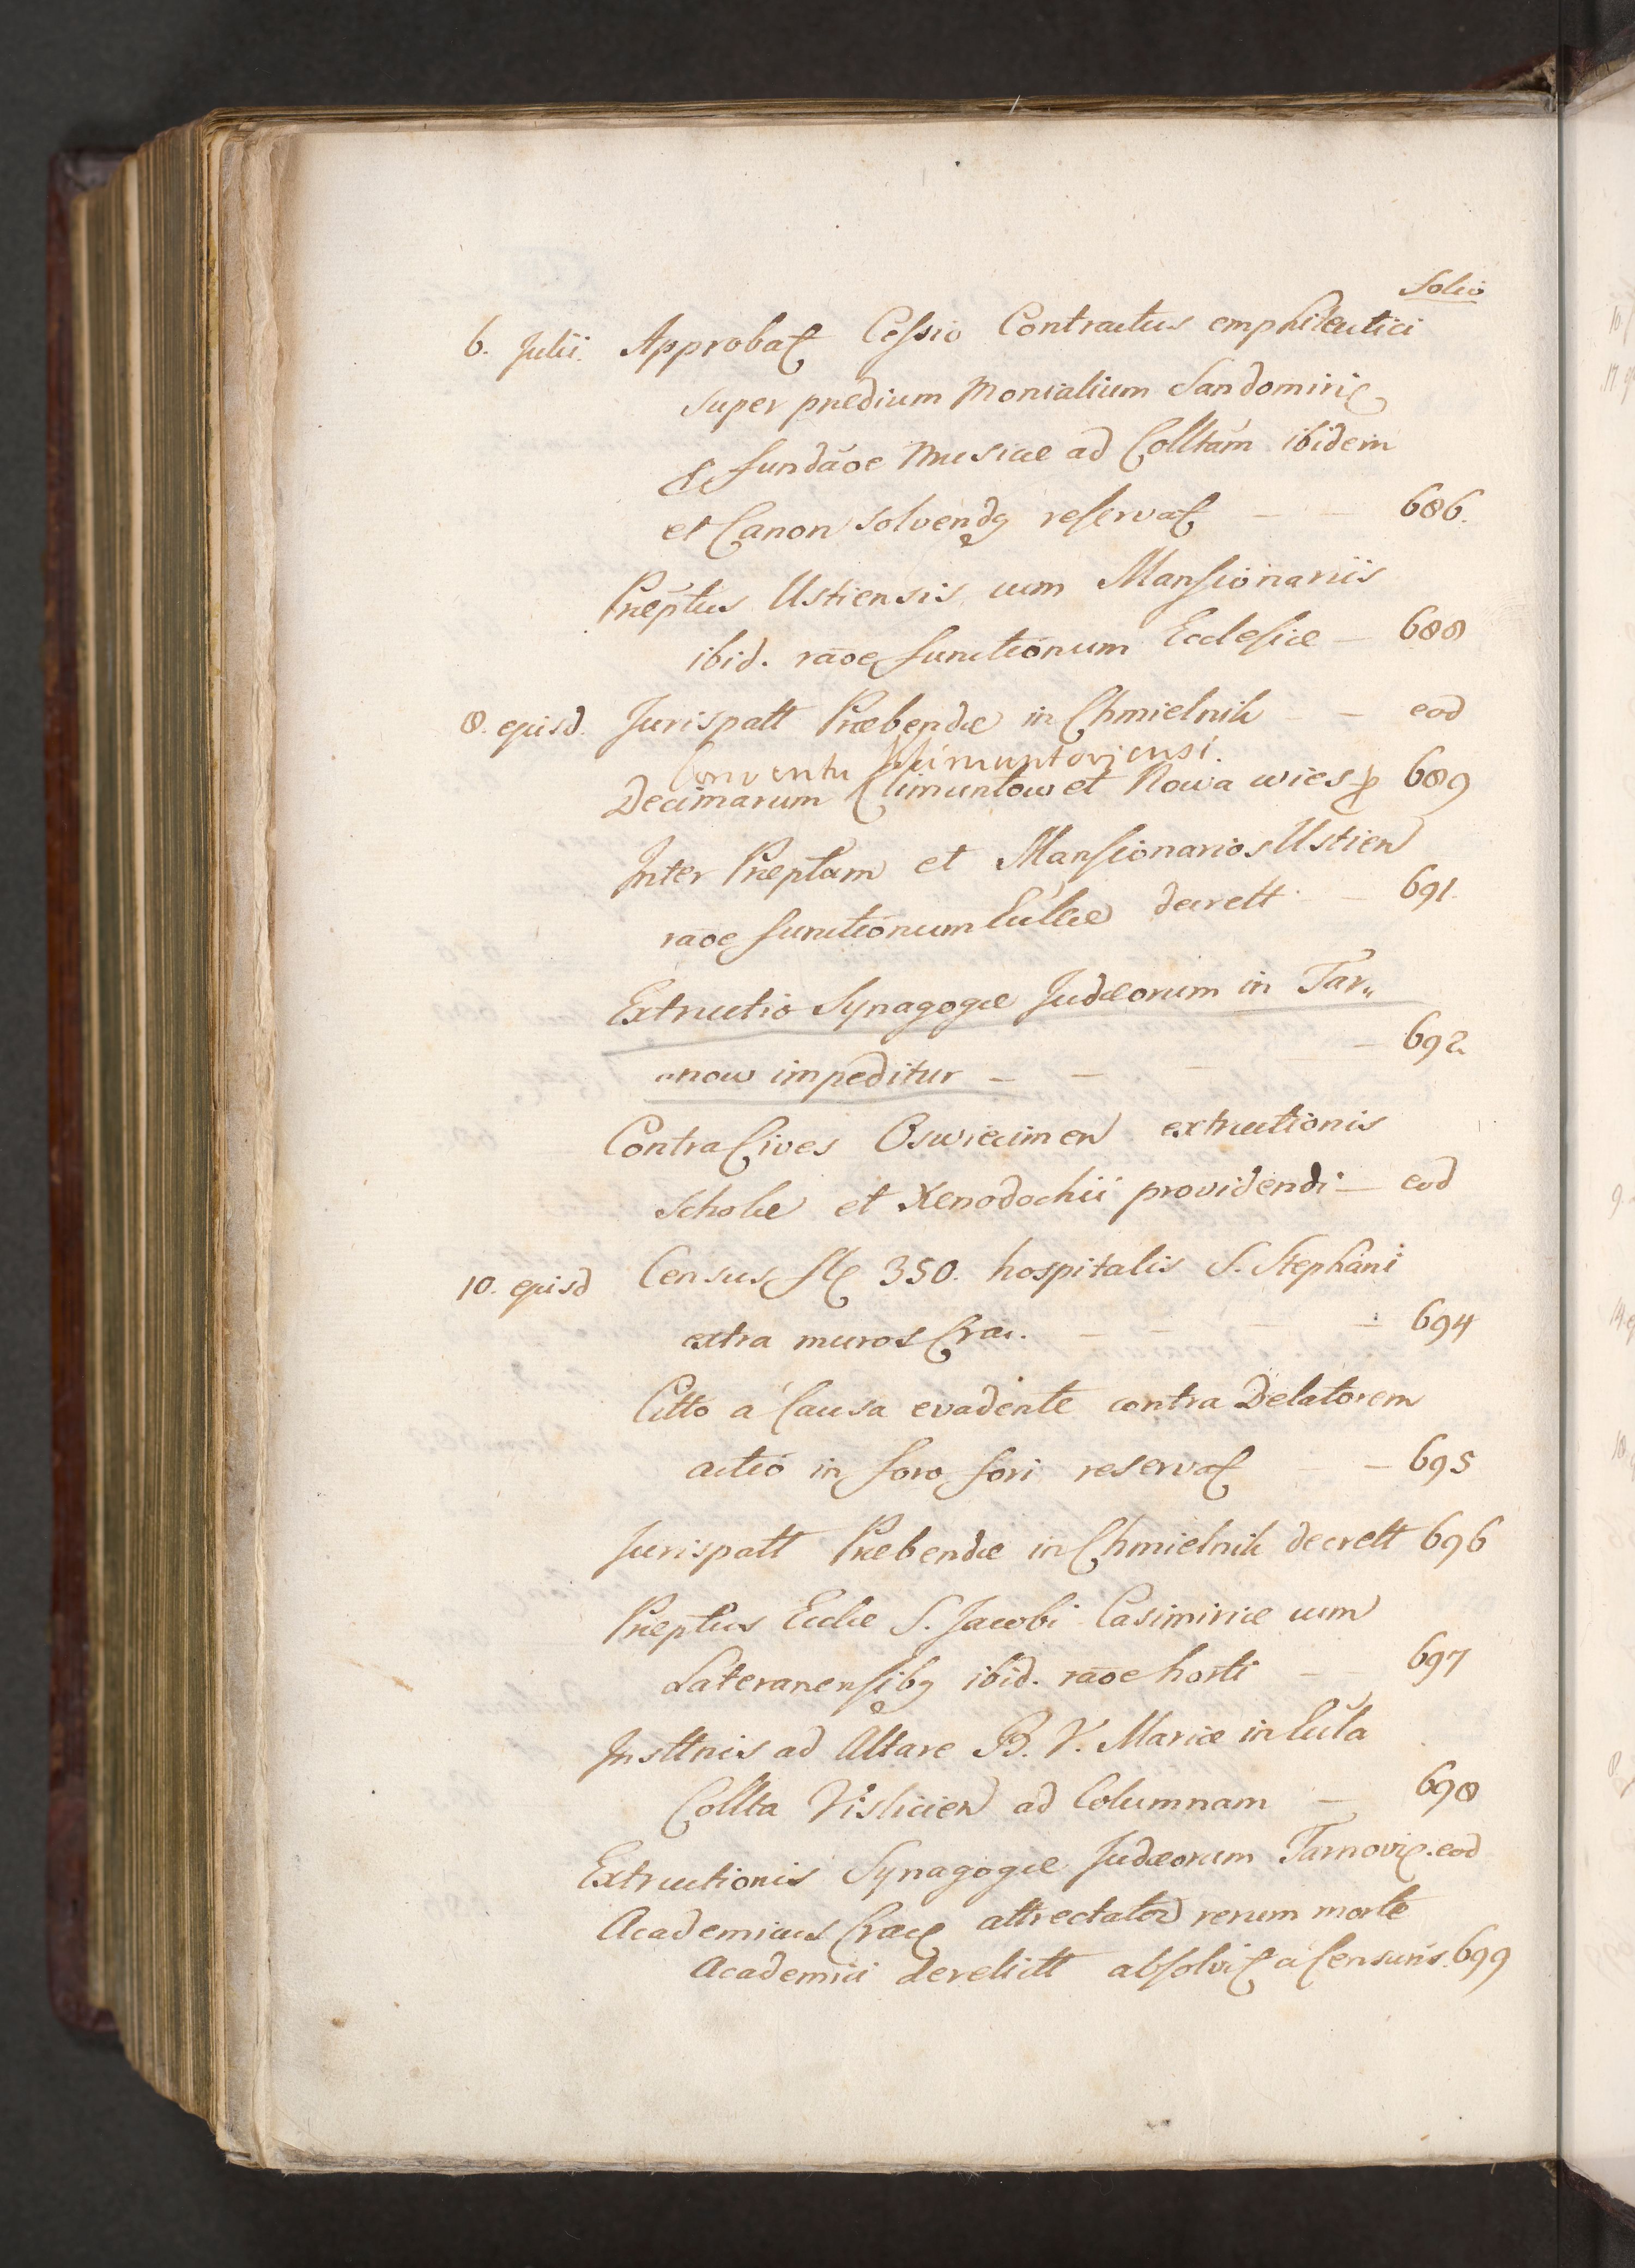 Folio
6. Julii. Approbat Cessio Contractus emphiteutici
super prædium Monialium Sandomiri
fundaoe Musicæ ad Colltam ibidem
et Canon solvendg reservat — — 686.
Præptus Ustiensis cum Mansionariis
ibid. raoe functionum Ecclesiæ — 688
8. ejusd. Jurispatt Præbendæ in Chmielnik — — eod
Conventu Klimuntoviensi.
Decimarum Climuntow et Nowa wies p 689
Inter Præptum et Mansionarios Ustien
raoe functionum Ecclæ decrett — 691.
Extructio Synagogæ Judæorum in Tar„
„now impeditur — — — — 692.
Contra Cives Oswiecimen extructionis
scholæ et Xenodochii providendi — eod
10. ejusd Census fl 350. hospitalis S. Stephani
extra muros Crac. — — — — 694
Citto a Causa evadente contra Delatorem
actio in foro fori reservat — — 695
Jurispatt Præbendæ in Chmielnik decrett 696
Præptus Ecclæ S. Jacobi Casimiriæ cum
Lateranensibg ibid. raoe horti — — 697
Insttnis ad Altare B. V. Mariæ in Ecla
Collta Vislicien ad Columnam — 698
Extructionis Synagogæ Judæorum Tarnovi. eod
Academicus Crac attrectator rerum morte
Academici derelictt absolvit a Censuris. 699